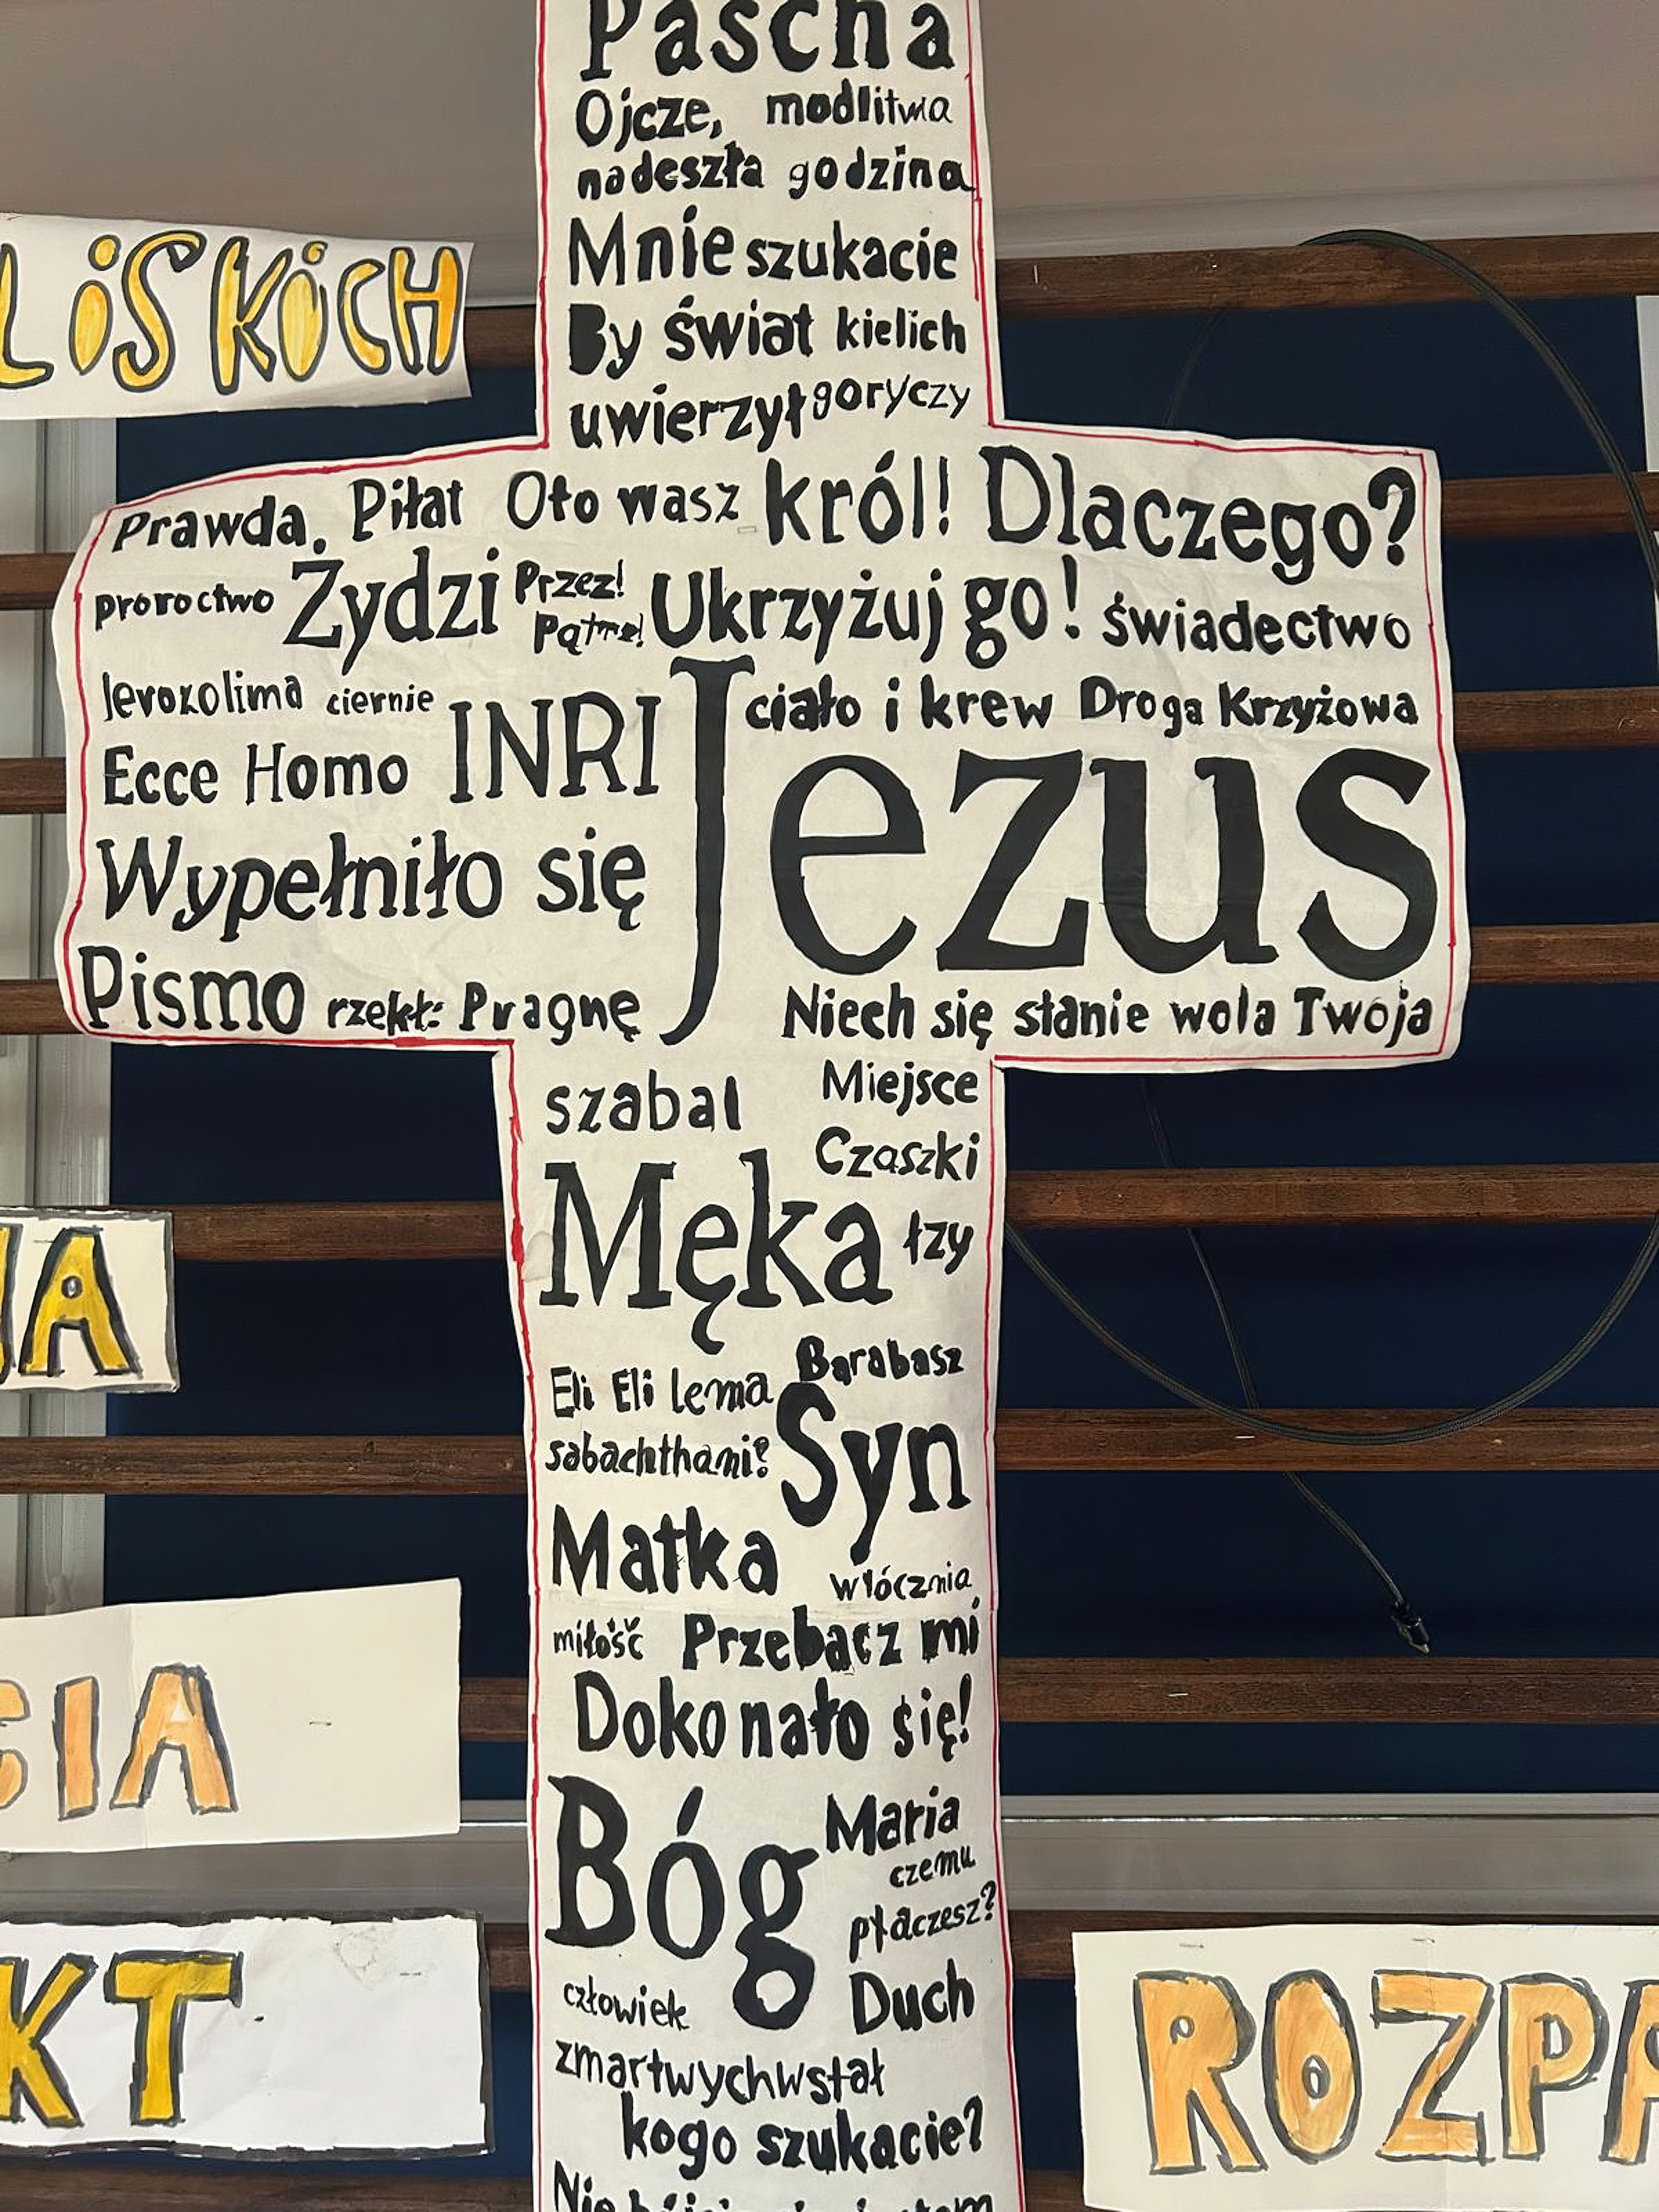 Pascha
Ojcze, modlitwa
nadeszła godzina
Mnie szukacie
By świat kielich
uwierzył goryczy
Prawda. Piłat Oto wasz król! Dlaczego?
proroctwo Żydzi Przez! Ukrzyżuj go! świadectwo
Jerozolima ciernie INRI ciało i krew Droga Krzyżowa
Ecce Homo Jezus
Wypełniło się
Pismo rzekł: Pragnę Niech się stanie wola Twoja
szabal Miejsce
Czaszki
Męka łzy
Barabasz
Eli Eli lema
sabachthani? Syn
Matka włócznia
miłość Przebacz mi
Dokonało się!
Bóg Maria
czemu
płaczesz?
człowiek Duch
zmartwychwstał
kogo szukacie?
LiSKiCH
JA
CIA
KT
ROZPA